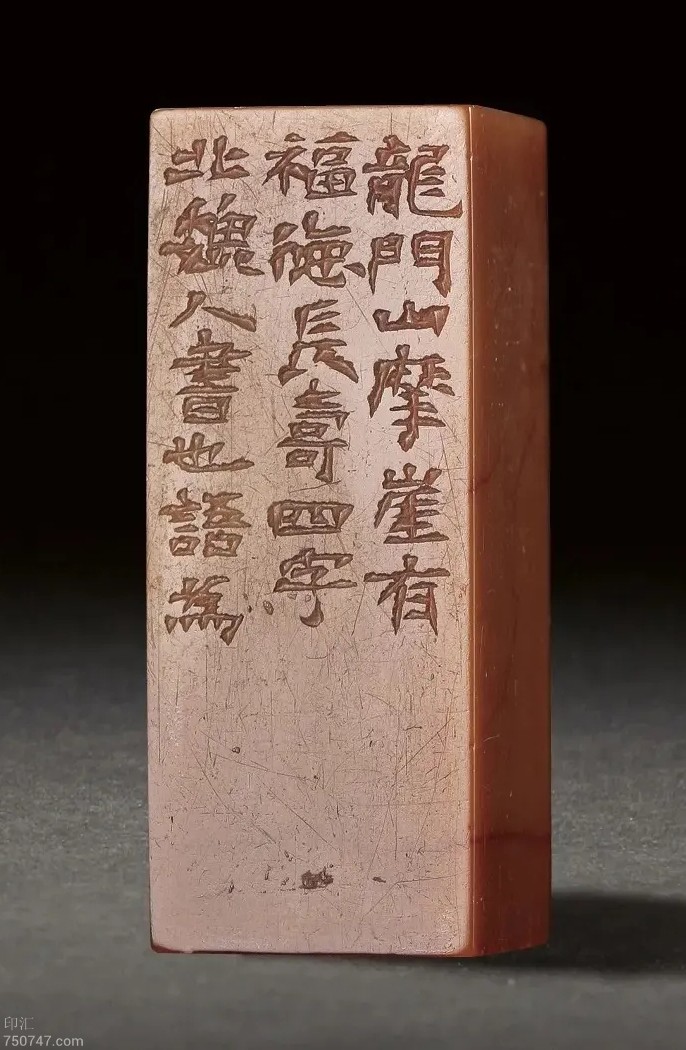 龍門山摩崖有
福德長壽四字
北魏人書也語爲
印汇
750747.com